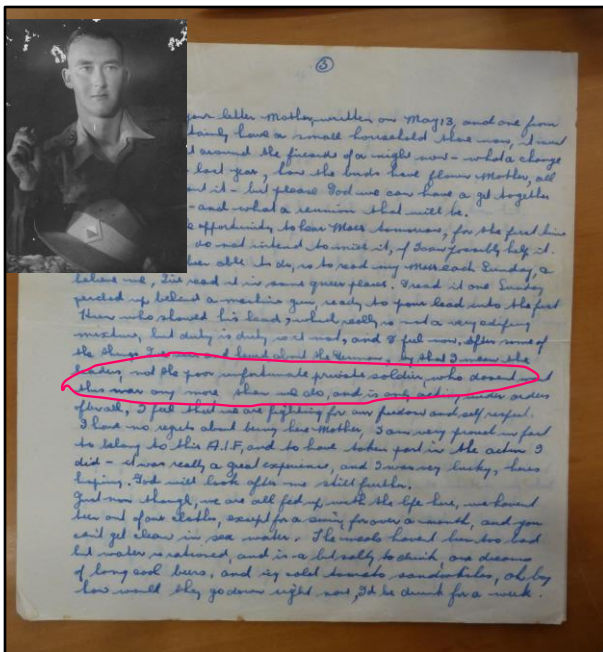 ③
your letter Mother, written on May 13, and one from
tainly have a small household there now, it
around the fireside of a night now - what a change
last year, how the birds have flown Mother, all
it - but please God we can have a get together
- and what a reunion that will be.
opportunity to hear Mass tomorrow, for the first time
do not intend to miss it, if I can possibly help it.
been able to do, is to read my Mass each Sunday, &
believe me, I've read it in some queer places. I read it one Sunday
perched up behind a machine gun, ready to pour lead into the first
Hun who showed his head, which really is not a very edifying
mixture, but duty is duty is it not, and I feel now, after some of
the things I and heard about the German, by that I mean the
leaders, not the poor unfortunate private soldier, who dosent want
this war any more than we do, and is only acting under orders
afterall, I feel that we are fighting for our freedom and self respect.
I have no regrets about being here Mother, I am very proud in fact
to belong to this A.I.F, and to have taken part in the action I
did - it was really a great experience, and I was very lucky, heres
hoping God will look after me still further.
Just now though, we are all fed up with the life here, we havent
been out of our clothes, except for a swim, for over a month, and you
can't get clean in sea water. The meals havent been too bad
but water is rationed, and is a bit salty to drink, our dreams
of long cool beers, and icy cold tomato sandwiches, oh boy
how would they go down right now, I'd be drunk for a week.